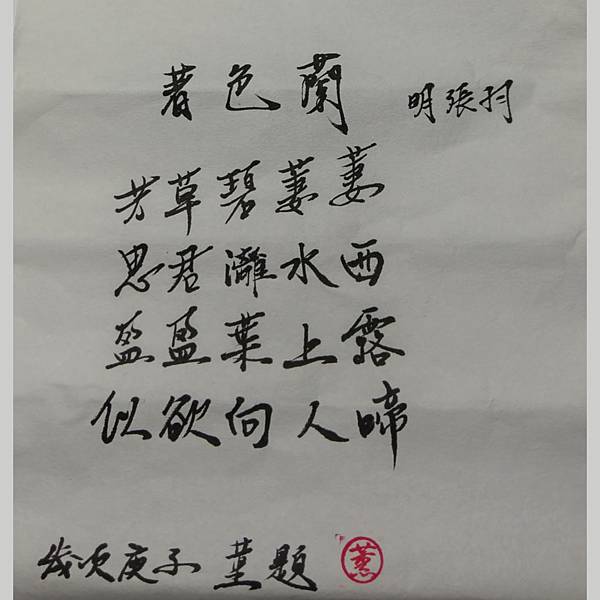 著色蘭 明張羽
芳草碧萋萋
思君灕水西
盈盈葉上露
似欲向人啼
歲次庚子 題